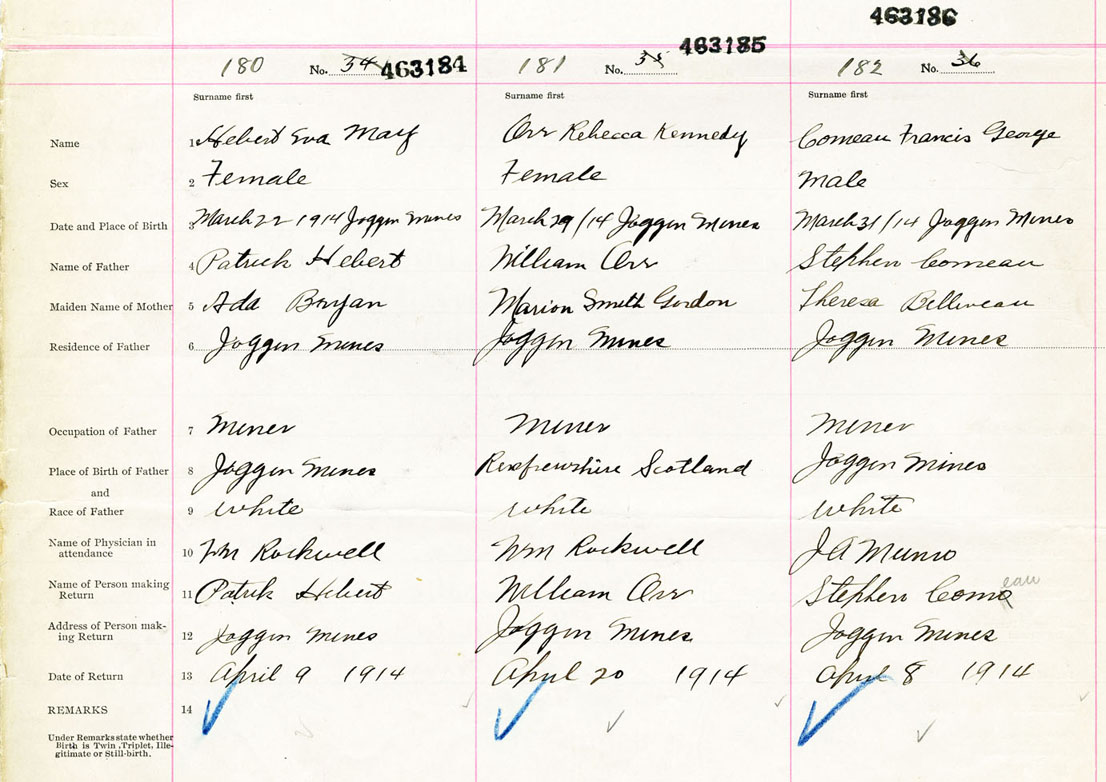 463186
463184
463185
180 No. 34
181 No. 35
182 No. 36
Surname first Surname first Surname first
Name 1 Hebert Eva May Orr Rebecca Kennedy Comeau Francis George
Sex 2 Female Female Male
Date and Place of Birth 3 March 22 1914 Joggin Mines March 29/14 Joggin Mines March 31/14 Joggin Mines
Name of Father 4 Patrick Hebert William Orr Stephen Comeau
Maiden Name of Mother 5 Ada Bryan Marion Smith Gordon Theresa Belliveau
Residence of Father 6 Joggin Mines Joggin Mines Joggin Mines
Occupation of Father 7 Miner Miner Miner
Place of Birth of Father 8 Joggin Mines Renfrewshire Scotland Joggin Mines
and
Race of Father 9 White White White
Name of Physician in
attendance 10 Wm Rockwell Wm Rockwell J A Munro
Name of Person making
Return 11 Patrik Hebert William Orr Stephen Como eau
Address of Person mak-
ing Return 12 Joggin Mines Joggin Mines Joggin Mines
Date of Return 13 April 9 1914 April 20 1914 April 8 1914
REMARKS 14
Under Remarks state whether
Birth is Twin, Triplet, Ille-
gitimate or Still-birth.